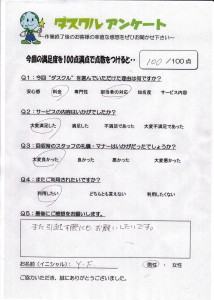 ダスクル アンケート
~作業終了後のお客様の率直な感想をぜひお聞かせ下さい~
今回の満足度を100点満点で点数をつけると・・ 100 /100点
Q1:今回"ダスクル"を選んでいただけた理由は何ですか?
安心感 料金 専門性 担当者の対応 知名度 サービス内容
Q2:サービスの内容はいかがでしたか?
大変満足した 満足した 不満足であった 大変不満であった
Q3:目板取のスタッフの礼儀・マナーはいかがだったでしょうか?
大変良かった 良かった 悪かった 大変悪かった
Q4:またご利用されたいですか?
利用したい どちらとも言えない 利用したくない
Q5:最後にご感想をお願いします。
また引越す際にもお願いしたいです。
お名前(イニシャル): Y.F (男性 ・ 女性
ご協力いただき、誠にありがとうございました。